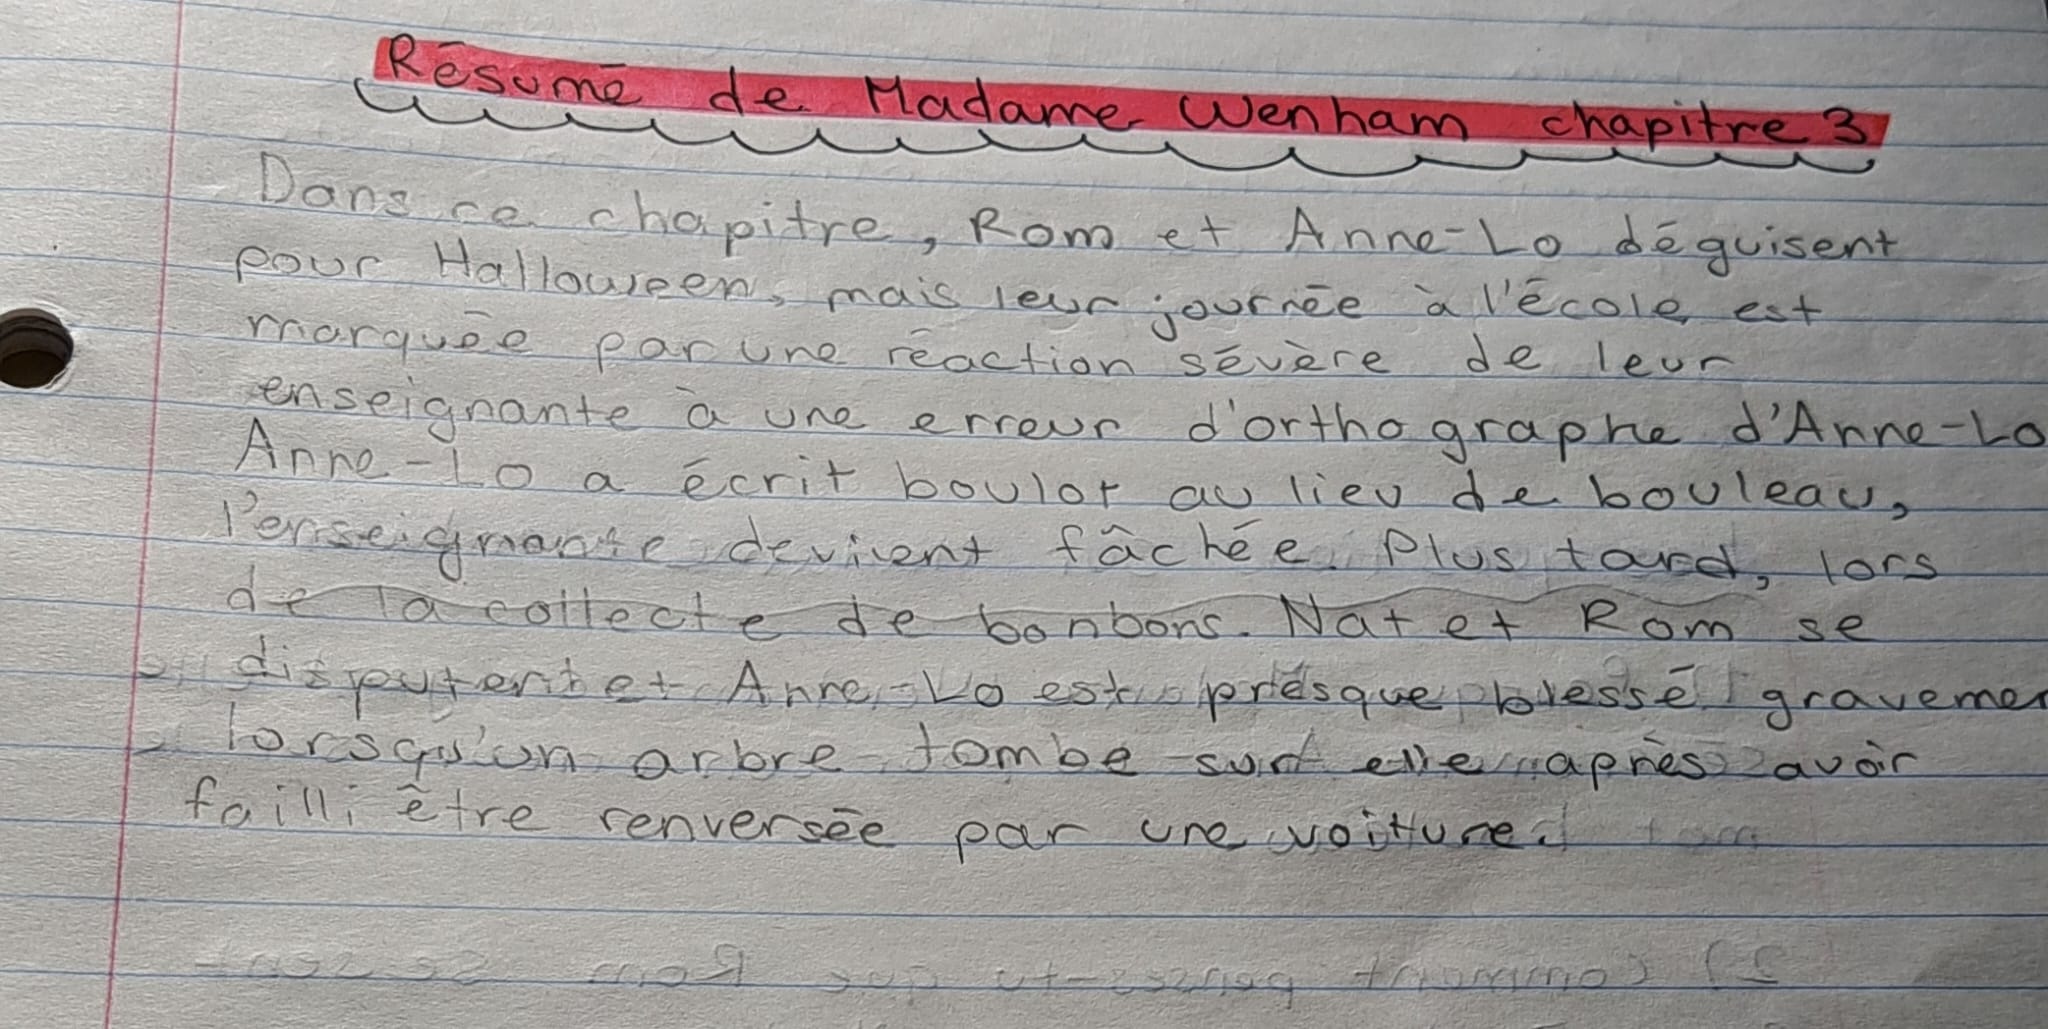 Résumé de Madame Wenham chapitre 3
Dans ce chapitre, Rom et Anne-Lo déguisent
pour Halloween, mais leur journée à l'école est
marquée par une réaction sévère de leur
enseignante à une erreur d'orthographe d'Anne-Lo
Anne-Lo a écrit boulot au lieu de bouleau,
l'enseignante devient fâchée. Plus tard, lors
de la collecte de bonbons. Nat et Rom se
disputent et Anne-Lo est presque blessé gravemen
lorsqu'un arbre tombe sur elle après avoir
failli être renversée par une voiture.